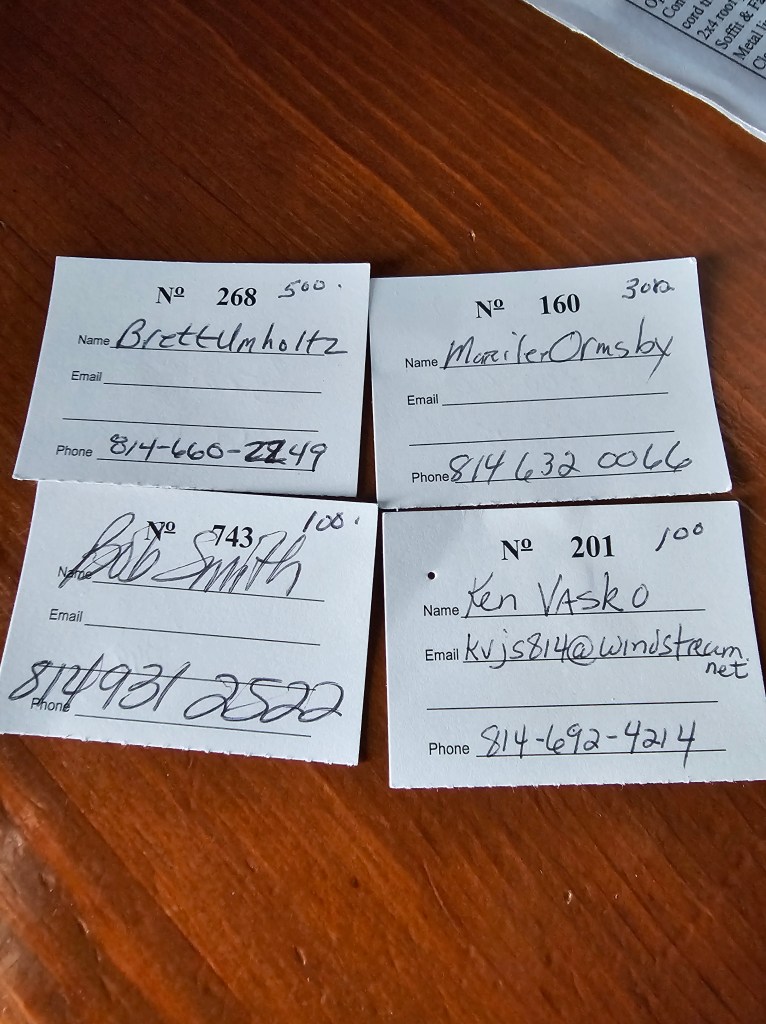 Nº 268 500.
Name Brett Umholtz
Email
Phone 814-660-2249
Nº 160 300
Name Ormsby
Email
Phone 814 632 0066
Nº 743 100.
Name Bob Smith
Email
Phone 814 931 2522
Nº 201 100
Name Ken VASKO
Email kvjs814@windstream.
net
Phone 814-692-4214
Con
cord
2x4 roof
Soffit & Fa
Metal